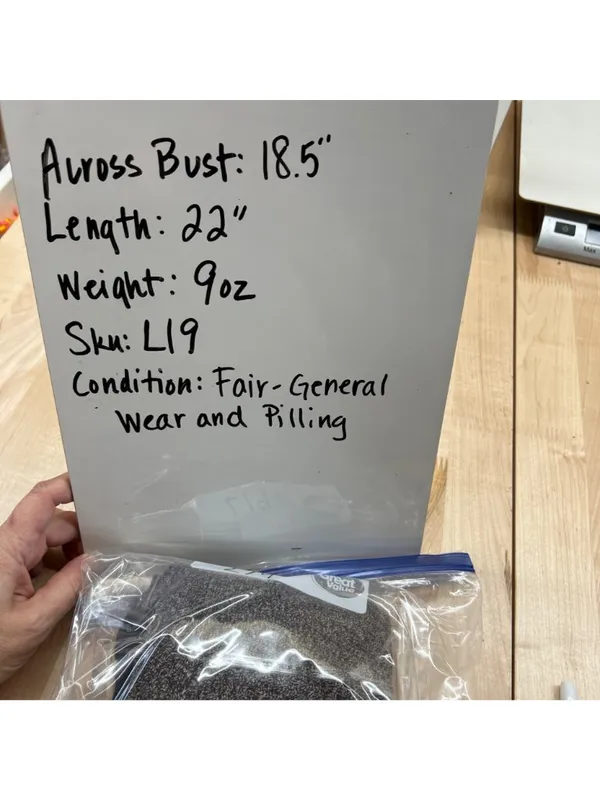 Across Bust: 18.5"
Length: 22"
Weight: 9oz
Sku: L19
Condition: Fair-General
Wear and Pilling
Great
Value
Max